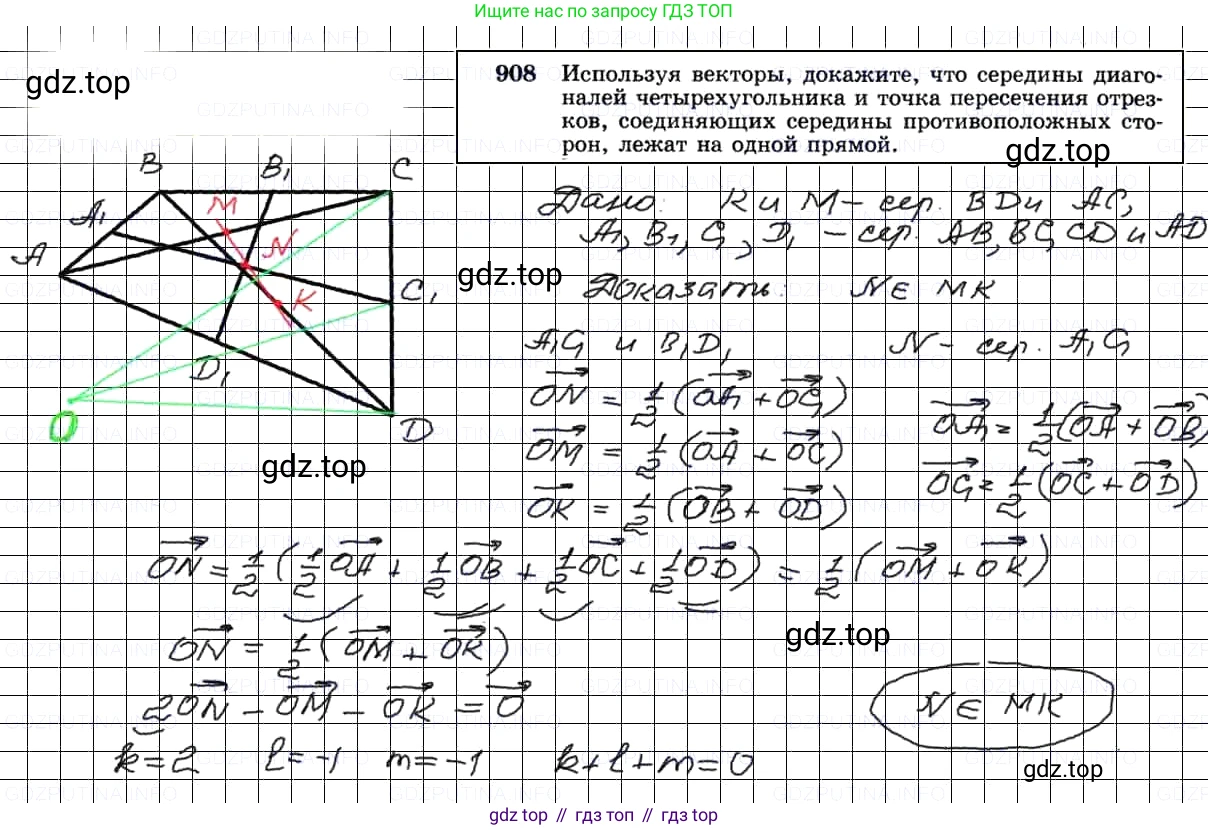 Ищите нас по запросу ГДЗ ТОП
gdz.top
908 Используя векторы, докажите, что середины диаго-
налей четырехугольника и точка пересечения отрез-
ков, соединяющих середины противоположных сто-
рон, лежат на одной прямой.
gdz.top
B B₁ C
M
A₁ N
A
K C₁
D₁
O D
gdz.top
gdz.top
Дано: K и M – сер. BD и AC,
A₁, B₁, C₁, D₁ – сер. AB, BC, CD и AD
Доказать: N ∈ MK
A₁C₁ и B₁D₁ N – сер. A₁C₁
ON = 1/2 (OA₁ + OC₁)
OA₁ = 1/2 (OA + OB)
OM = 1/2 (OA + OC)
OC₁ = 1/2 (OC + OD)
OK = 1/2 (OB + OD)
ON = 1/2 (1/2 OA + 1/2 OB + 1/2 OC + 1/2 OD) = 1/2 (OM + OK)
ON = 1/2 (OM + OK)
gdz.top
2ON – OM – OK = O
N ∈ MK
k = 2 l = -1 m = -1 k + l + m = 0
gdz.top
gdz.top // гдз топ // gdz top